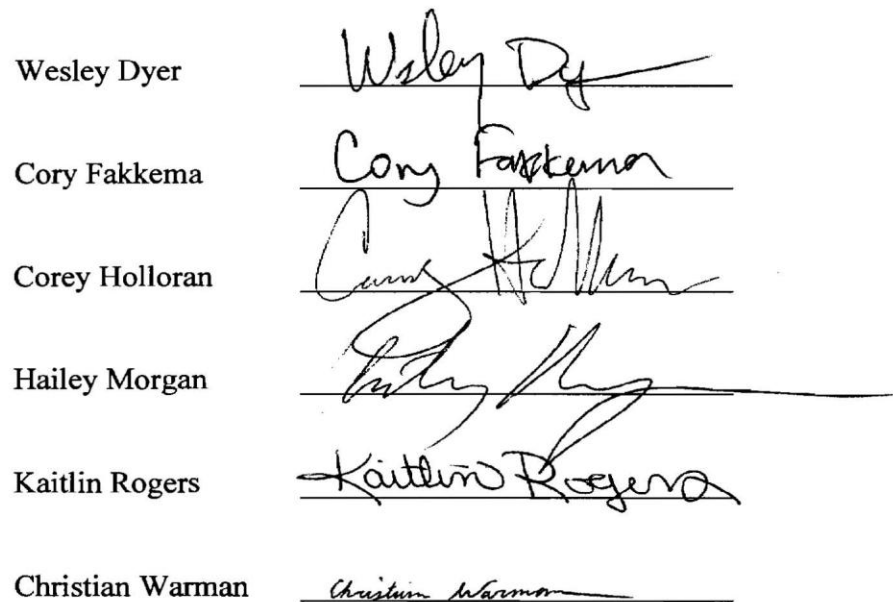 Wesley Dyer Wesley Dy
Cory Fakkema Cory Fakkema
Corey Holloran
Hailey Morgan
Kaitlin Rogers Kaitlin Rogers
Christian Warman Christian Warman